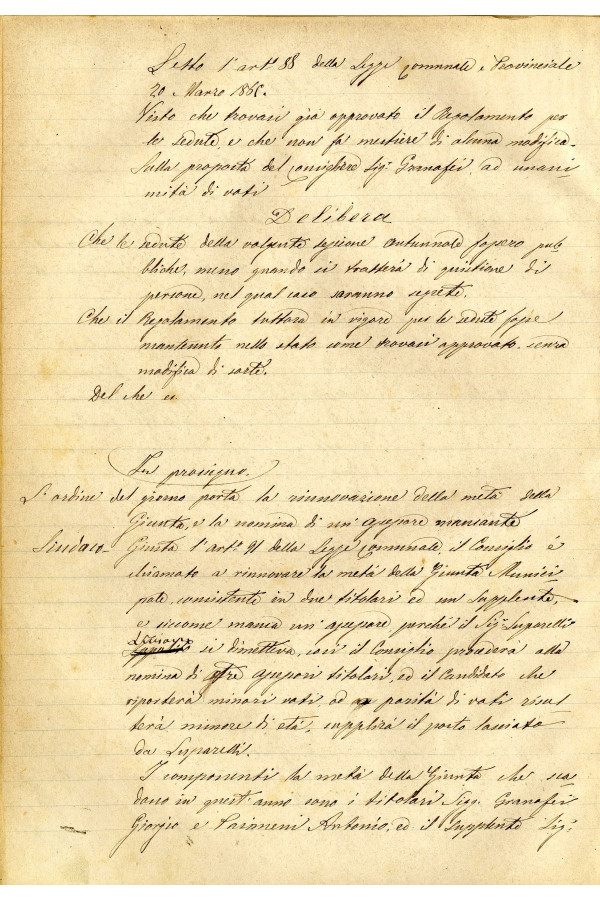 Letto l'art.º 88 della Legge Comunale e Provinciale
20 Marzo 1865.
Visto che trovasi già approvato il Regolamento per
le sedute, e che non fa mestiere di alcuna modifica.
Sulla proposta del Consigliere Sig.r Granafei, ad unani
mità di voti
Delibera
Che le sedute della volgente sessione autunnale fossero pub
bliche, meno quando si tratterà di quistione di
persone, nel qual caso saranno segrete.
Che il Regolamento tuttora in vigore per le sedute fosse
mantenuto nello stato come trovasi approvato, senza
modifica di sorte.
Del che ec
In prosieguo.
L'ordine del giorno porta la rinnovazione della metà della
Giunta, e la nomina di un'assessore mancante
Sindaco - Giusta l'art.º 91 della Legge Comunale, il Consiglio è
chiamato a rinnovare la metà della Giunta Munici
pale, consistente in due titolari ed un supplente,
e siccome manca un'assessore perché il Sig.r Luparelli
si dimetteva, così il Consiglio procederà alla
nomina di tre assessori titolari, ed il Candidato che
riporterà minori voti, ad parità di voti risul
terà minore di età, supplirà il posto lasciato
da Luparelli.
I componenti la metà della Giunta che sca
dano in quest'anno sono i titolari Sigg. Granafei
Giorgio e Antonio, ed il supplente Sig.r